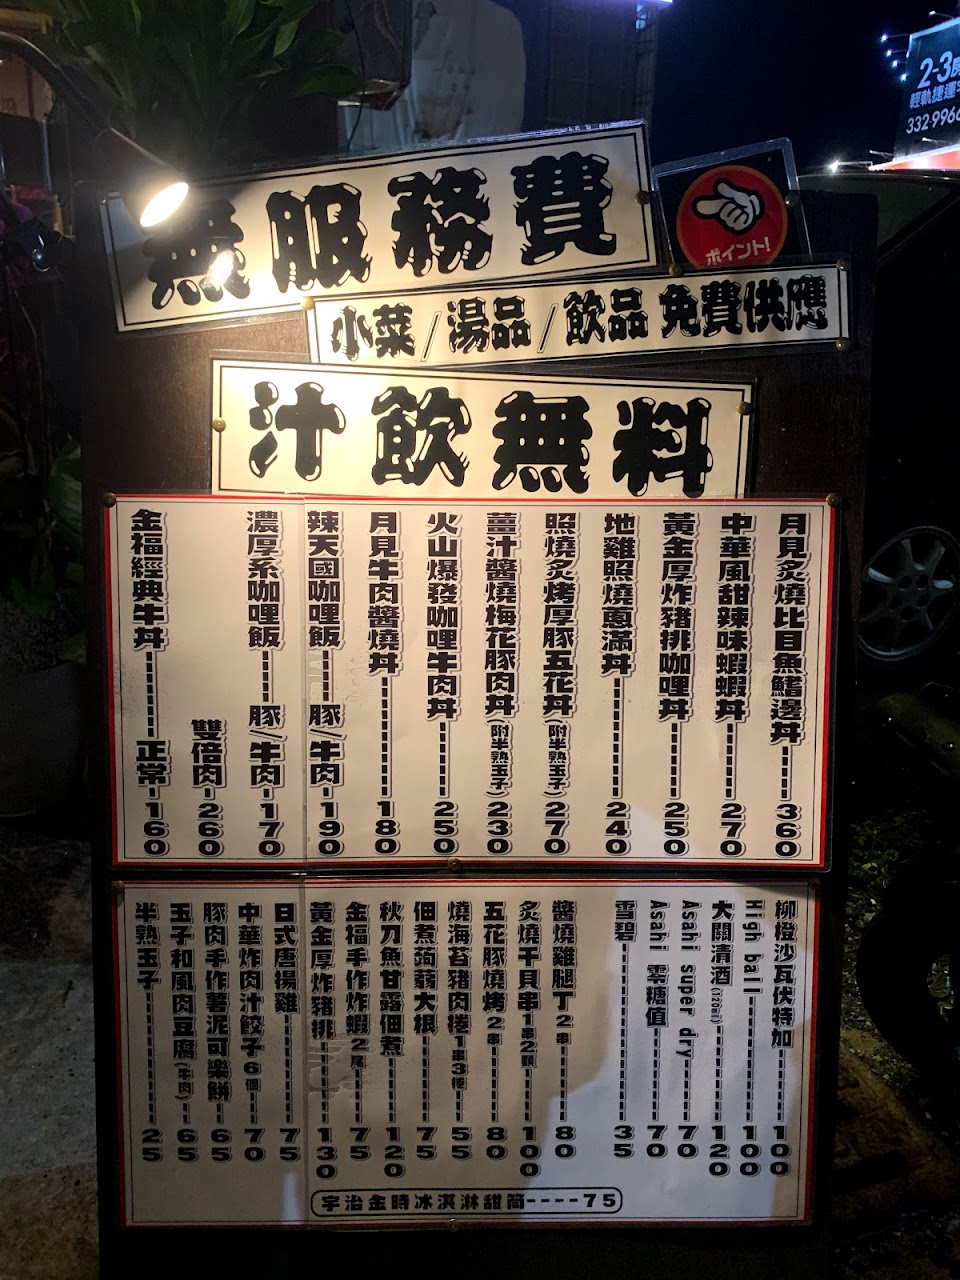 無服務費
ポイント!
小菜/湯品/飲品 免費供應
汁飲無料
月見炙燒比目魚鰭邊丼------360
中華風甜辣味蝦蝦丼------270
黃金厚炸豬排咖哩丼------250
地雞照燒蔥滿丼------240
照燒炙烤厚豚五花丼(附半熟玉子)270
薑汁醬燒梅花豚肉丼(附半熟玉子)230
火山爆發咖哩牛肉丼------250
月見牛肉醬燒丼------180
辣天國咖哩飯------豚/牛肉-190
濃厚系咖哩飯------豚/牛肉-170
雙倍肉-260
金福經典牛丼------正常-160
柳橙沙瓦伏特加------100
High ball------100
大關清酒(120ml)------120
Asahi super dry------70
Asahi 零糖值------70
雪碧------35
醬燒雞腿丁2串------80
炙燒干貝串1串2顆------100
五花豚燒烤2串------80
燒海苔豬肉捲1串3捲------55
佃煮蒟蒻大根------75
秋刀魚甘露佃煮------120
金福手作炸蝦2尾------75
黃金厚炸豬排------130
日式唐揚雞------75
中華炸肉汁餃子6個------70
豚肉手作薯泥可樂餅------65
玉子和風肉豆腐(牛肉)------65
半熟玉子------25
宇治金時冰淇淋甜筒----75
2-3房
輕軌捷運
332-9966